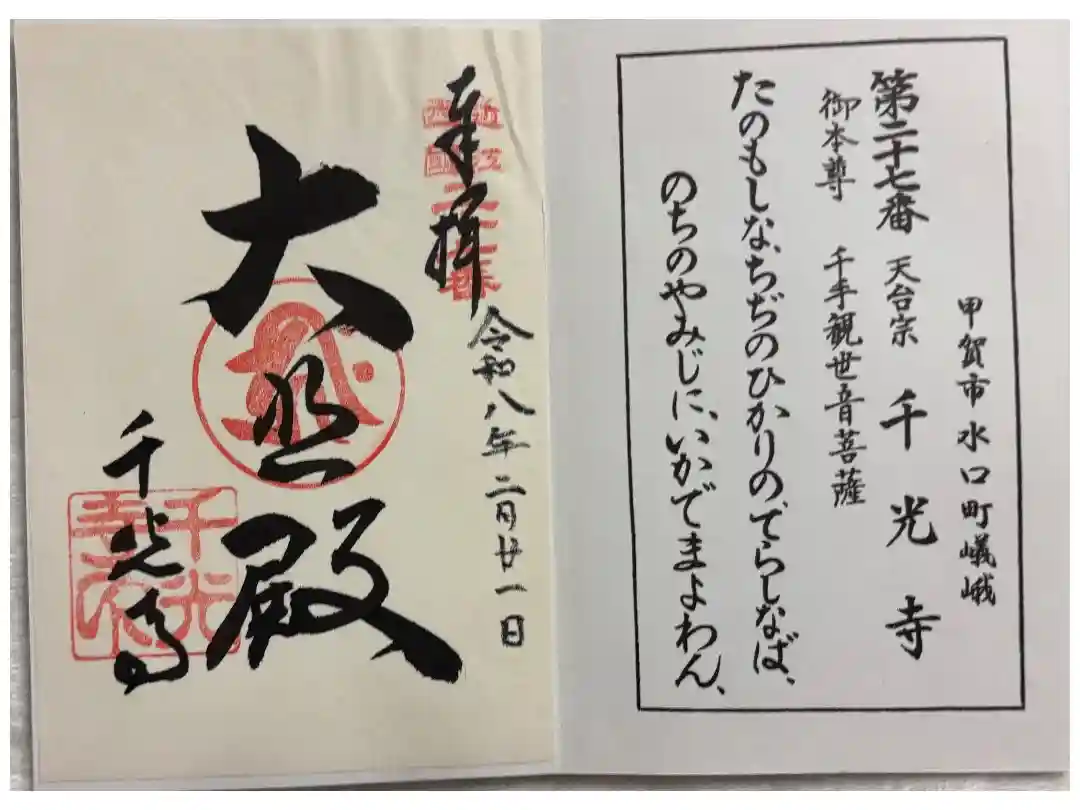 甲賀市水口町嶬峨
第二十七番 天台宗 千光寺
御本尊 千手観世音菩薩
たのもしな、ちぢのひかりの、でらしなば、
のちのやみじに、いかでまよわん、
奉拝
令和八年二月廿一日
大悲殿
千光寺
近江
西国
二十七番
千光
寺印